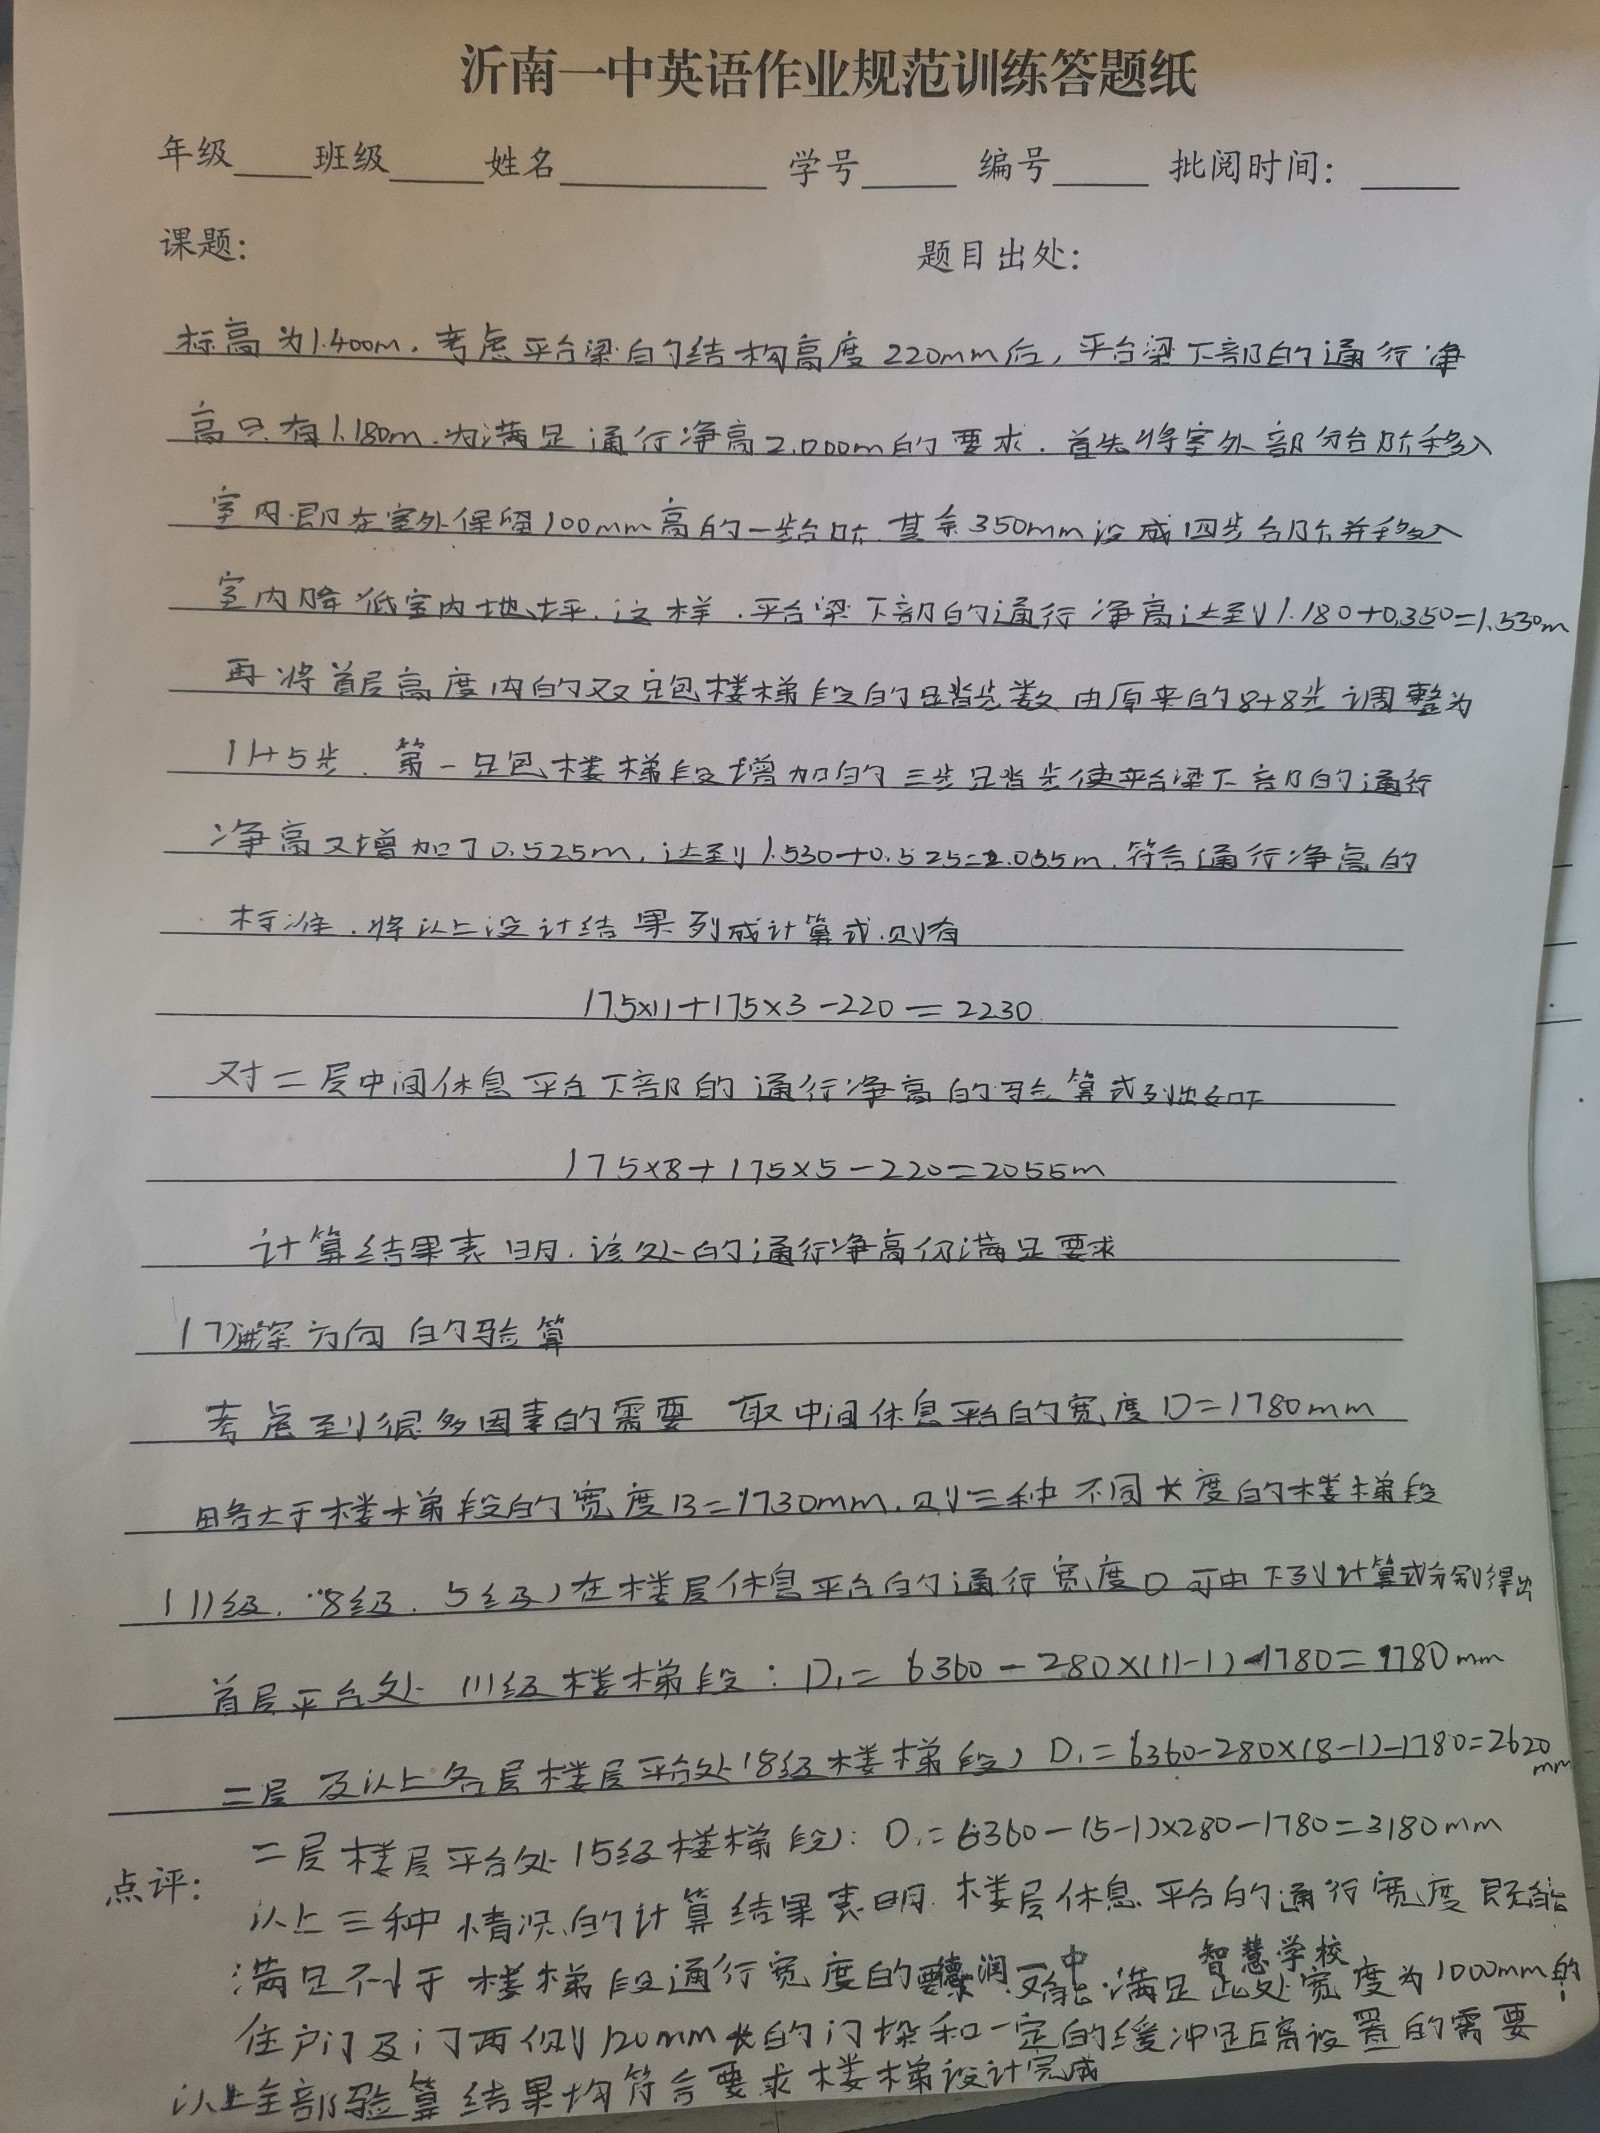 沂南一中英语作业规范训练答题纸
年级____班级____姓名________ 学号____ 编号____ 批阅时间：____
课题： 题目出处：
标高为1.400m.考虑平台梁的结构高度220mm后,平台梁下部的通行净
高只有1.180m.为满足通行净高2.000m的要求.首先将室外部分台阶移入
室内.即在室外保留100mm高的一步台阶.其余350mm设成四步台阶并移入
室内降低室内地坪.这样.平台梁下部的通行净高达到1.180+0.350=1.530m
再将首层高度内的双跑楼梯段的踏步数由原来的8+8步调整为
11+5步.第一跑楼梯段增加的三步踏步使平台梁下部的通行
净高又增加了0.525m,达到1.530+0.525=2.055m.符合通行净高的
标准.将以上设计结果列成计算式.则有
175×11+175×3-220=2230
对二层中间休息平台下部的通行净高的验算式列出如下
175×8+175×5-220=2055m
计算结果表明.该处的通行净高仍满足要求
(7)进深方向的验算
考虑到很多因素的需要 取中间休息平台的宽度D=1780mm
略大于楼梯段的宽度B=1730mm.则三种不同长度的楼梯段
(11级.8级.5级)在楼层休息平台的通行宽度D可由下列计算式分别得出
首层平台处(11级楼梯段:D1=6360-280×(11-1)-1780=1780mm
二层及以上各层楼层平台处(8级楼梯段)D1=6360-280×(8-1)-1780=2620mm
二层楼层平台处(5级楼梯段):D1=6360-(5-1)×280-1780=3180mm
点评：
以上三种情况的计算结果表明.楼层休息平台的通行宽度既能
满足不小于楼梯段通行宽度的要求.又能满足此处宽度为1000mm的
德润一中 智慧学校
住户门及门两侧120mm长的门垛和一定的缓冲距离设置的需要
以上全部验算结果均符合要求楼梯设计完成